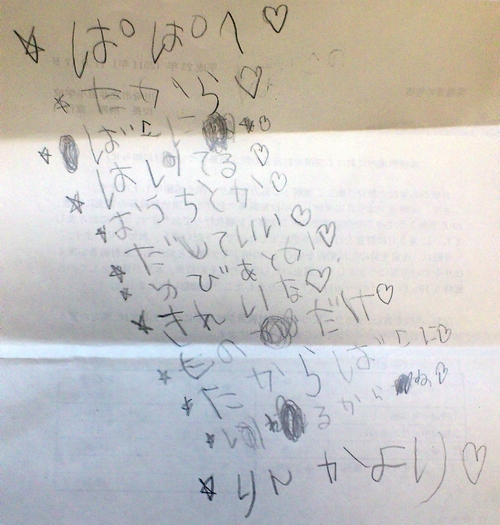 ぱぱへ♡
たから♡
ばこに♡
はいてる♡
うちとか♡
だしていい♡
ゆび
きれいな♡
ものだけ♡
たからばこに♡
いるからね♡
りこ より♡